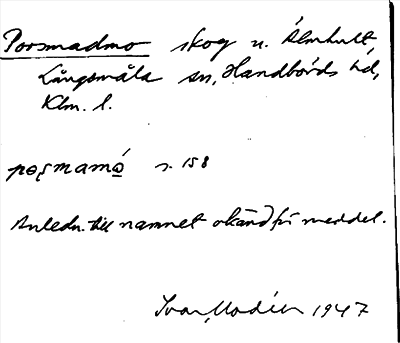 Porsmadmo skog u. Älmhult,
Långsmåla sn, Handbörds hd,
Klm. l.
poʂmamo̲ s. 158
Anledn. till namnet okänd för meddel.
Ivar Modéer 1947